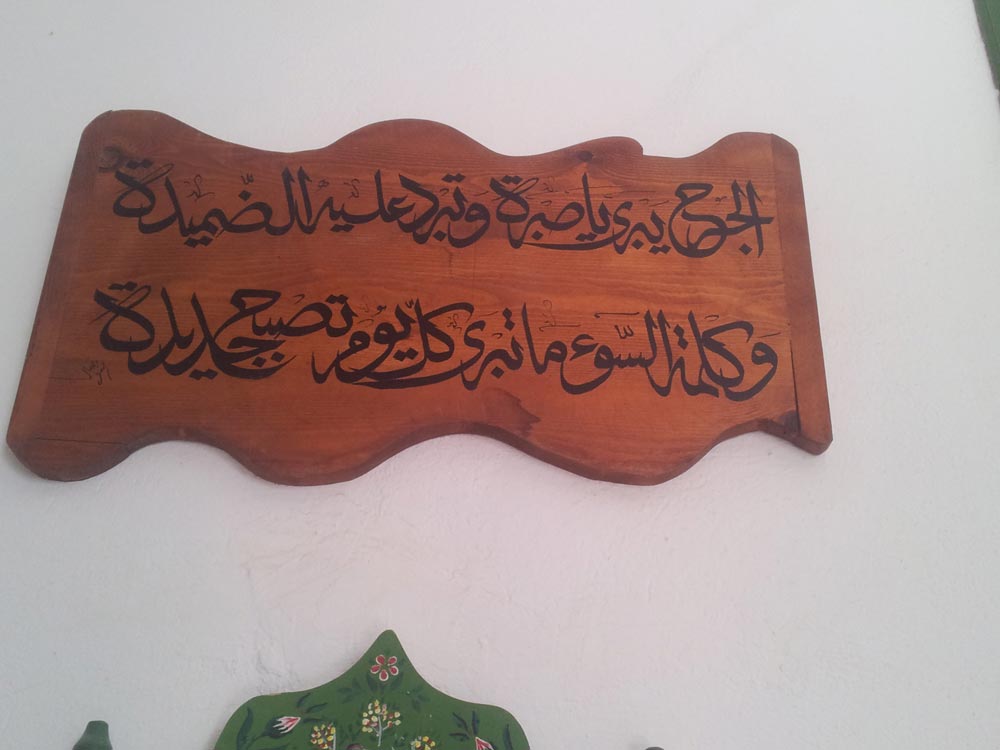 الجرح يبرى يا صبرة وتبرد عليه الضّميدة
وكلمة السّوء ما تبرى كلّ يوم تصبح جديدة